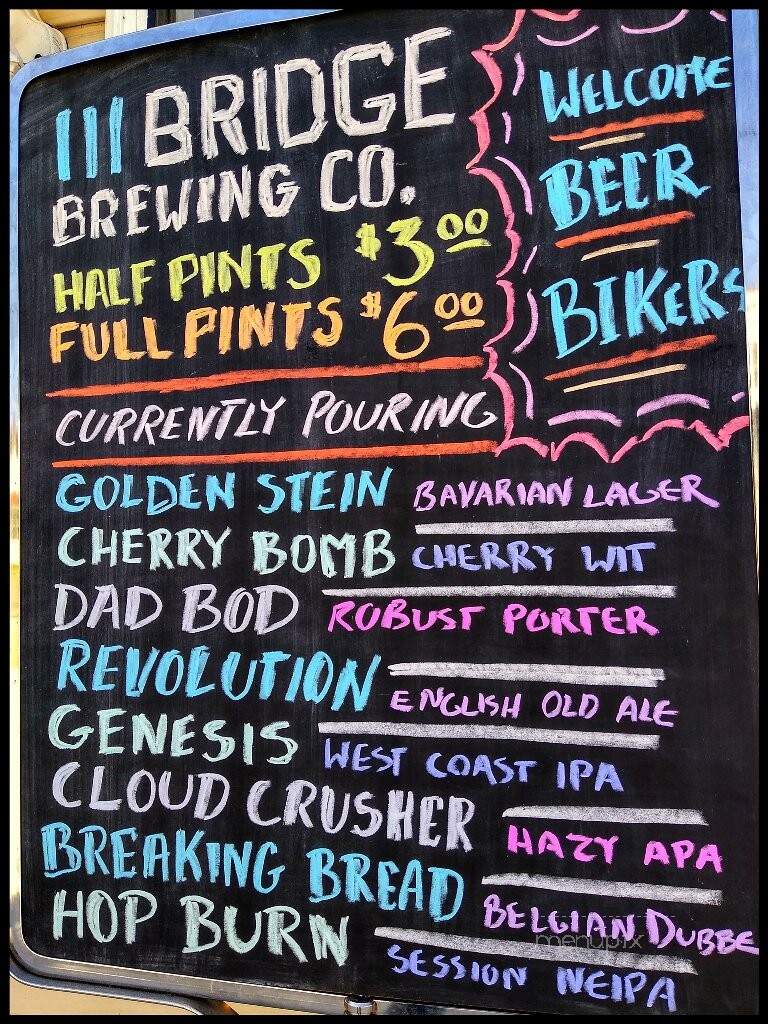 III BRIDGE
BREWING CO.
HALF PINTS $3.00
FULL PINTS $6.00
WELCOME
BEER
BIKERS
CURRENTLY POURING
GOLDEN STEIN BAVARIAN LAGER
CHERRY BOMB CHERRY WIT
DAD BOD ROBUST PORTER
REVOLUTION ENGLISH OLD ALE
GENESIS WEST COAST IPA
CLOUD CRUSHER HAZY APA
BREAKING BREAD BELGIAN DUBBE
HOP BURN SESSION NEIPA
menupix